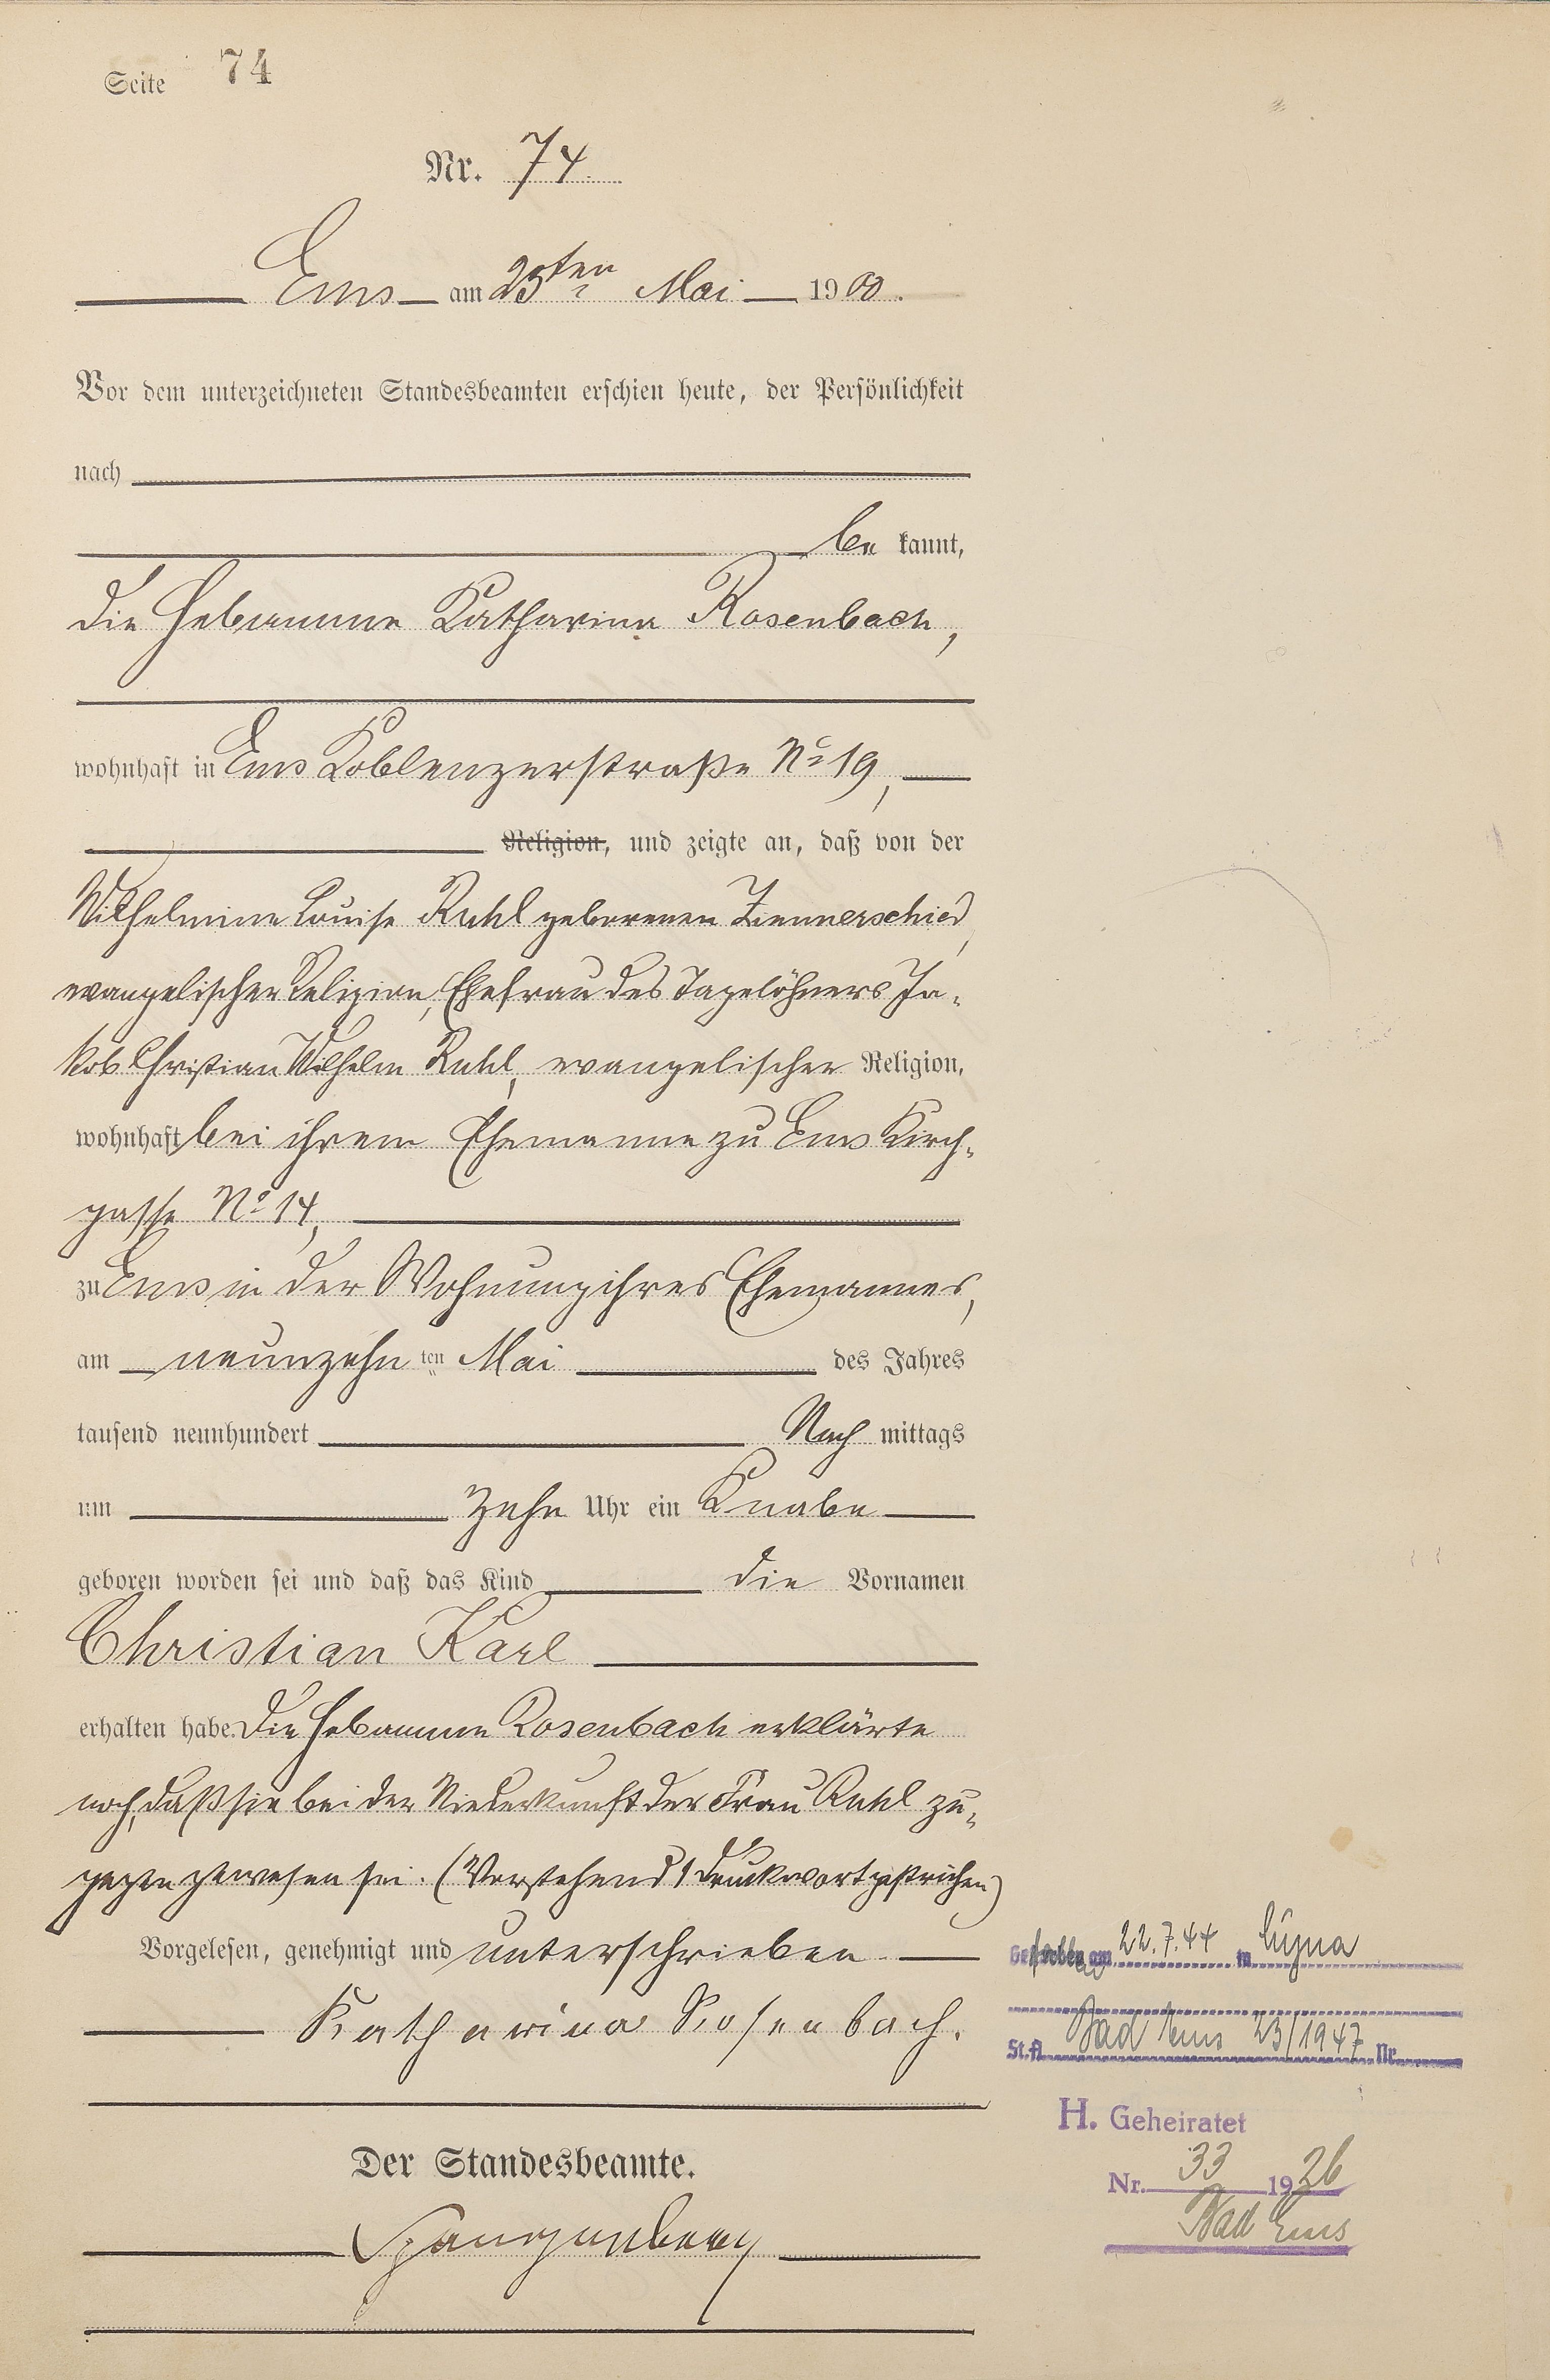 Seite 74
Nr. 74.
Ems am 23ten Mai 1900.
Vor dem unterzeichneten Standesbeamten erschien heute, der Persönlichkeit
nach
be kannt,
die Hebamme Katharina Rosenbach,
wohnhaft in Ems Koblenzerstraße No 19,
Religion, und zeigte an, daß von der
Wilhelmine Louise Ruhl geborenen Zimmerschied,
evangelischer Religion, Ehefrau des Tagelöhners Ja-
kob Christian Wilhelm Ruhl, evangelischer Religion,
wohnhaft bei ihrem Ehemanne zu Ems Kirch-
gasse No 14,
zu Ems in der Wohnung ihres Ehemannes,
am neunzehn ten Mai des Jahres
tausend neunhundert Nach mittags
um zehn Uhr ein Knabe
geboren worden sei und daß das Kind die Vornamen
Christian Karl
erhalten habe. Die Hebamme Rosenbach erklärte
noch, daß sie bei der Niederkunft der Frau Ruhl zu-
gegen gewesen sei. (Vorstehend 1 Druckwort gestrichen)
Vorgelesen, genehmigt und unterschrieben
Katharina Rosenbach.
Der Standesbeamte.
Spangenberg
Gestorben am 22.7.44 in
St.A. Bad Ems 23/1947 Nr.
H. Geheiratet
Nr. 33 1926
Bad Ems